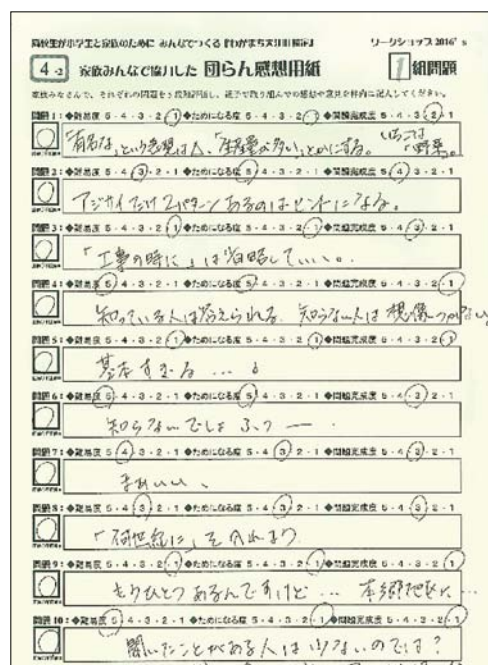 高校生が小学生と家族のために みんなでつくる『わがまち天川町検定』 ワークショップ2016's
4-2 家族みんなで協力した 団らん感想用紙 1組問題
問題1:◆難易度 5・4・3・2・1 ◆ためになる度 5・4・3・2・1 ◆問題完成度 5・4・3・2・1
「有名な」という表現は△、「生産量が多い」とかにする。 いちごは「野菜」。
問題2:◆難易度 5・4・3・2・1 ◆ためになる度 5・4・3・2・1 ◆問題完成度 5・4・3・2・1
アジサイだけ2パターンあるのはヒントになる。
問題3:◆難易度 5・4・3・2・1 ◆ためになる度 5・4・3・2・1 ◆問題完成度 5・4・3・2・1
「工事の時に」は省略していい。
問題4:◆難易度 5・4・3・2・1 ◆ためになる度 5・4・3・2・1 ◆問題完成度 5・4・3・2・1
知っている人は答えられる 知らない人は想像つかない。
問題5:◆難易度 5・4・3・2・1 ◆ためになる度 5・4・3・2・1 ◆問題完成度 5・4・3・2・1
基本すぎる…。
問題6:◆難易度 5・4・3・2・1 ◆ためになる度 5・4・3・2・1 ◆問題完成度 5・4・3・2・1
知らないでしょ ふつー。
問題7:◆難易度 5・4・3・2・1 ◆ためになる度 5・4・3・2・1 ◆問題完成度 5・4・3・2・1
まあいい、
問題8:◆難易度 5・4・3・2・1 ◆ためになる度 5・4・3・2・1 ◆問題完成度 5・4・3・2・1
「何世紀に」を入れよう
問題9:◆難易度 5・4・3・2・1 ◆ためになる度 5・4・3・2・1 ◆問題完成度 5・4・3・2・1
もうひとつあるんですけど… 本郷地区に…
問題10:◆難易度 5・4・3・2・1 ◆ためになる度 5・4・3・2・1 ◆問題完成度 5・4・3・2・1
聞いたことがある人は少ないのでは?